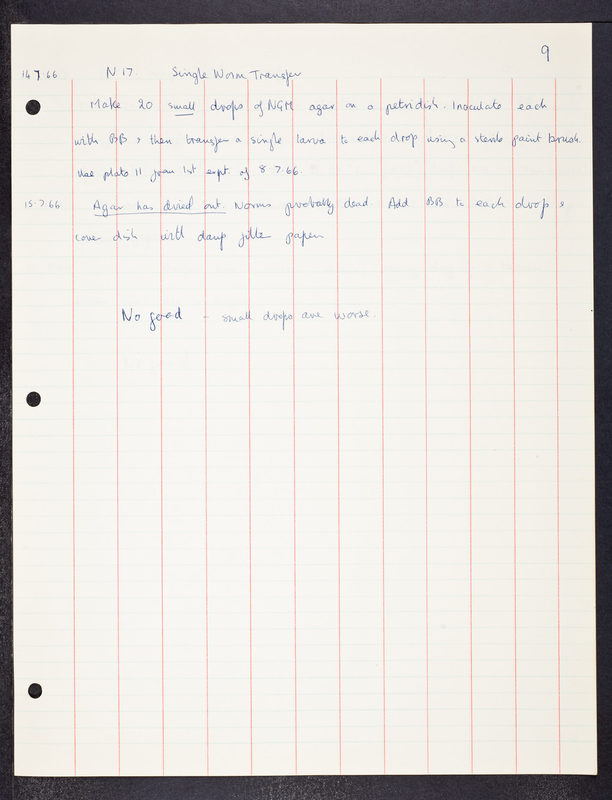 9
14.7.66 N17. Single Worm Transfer
Make 20 small drops of NGM agar on a petridish. Inoculate each
with BB & then transfer a single larva to each drop using a sterile paint brush.
Use plate 11 from 1st expt. of 8.7.66.
15.7.66 Agar has dried out. Worms probably dead. Add BB to each drop &
cover dish with damp filter paper
No good - small drops are worse.